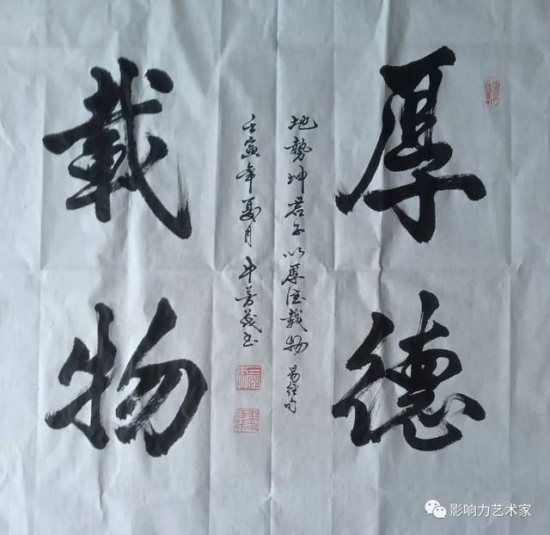 厚德
載物
地勢坤君子以厚德載物 易经句
壬寅年夏月牛芳茂书
影响力艺术家